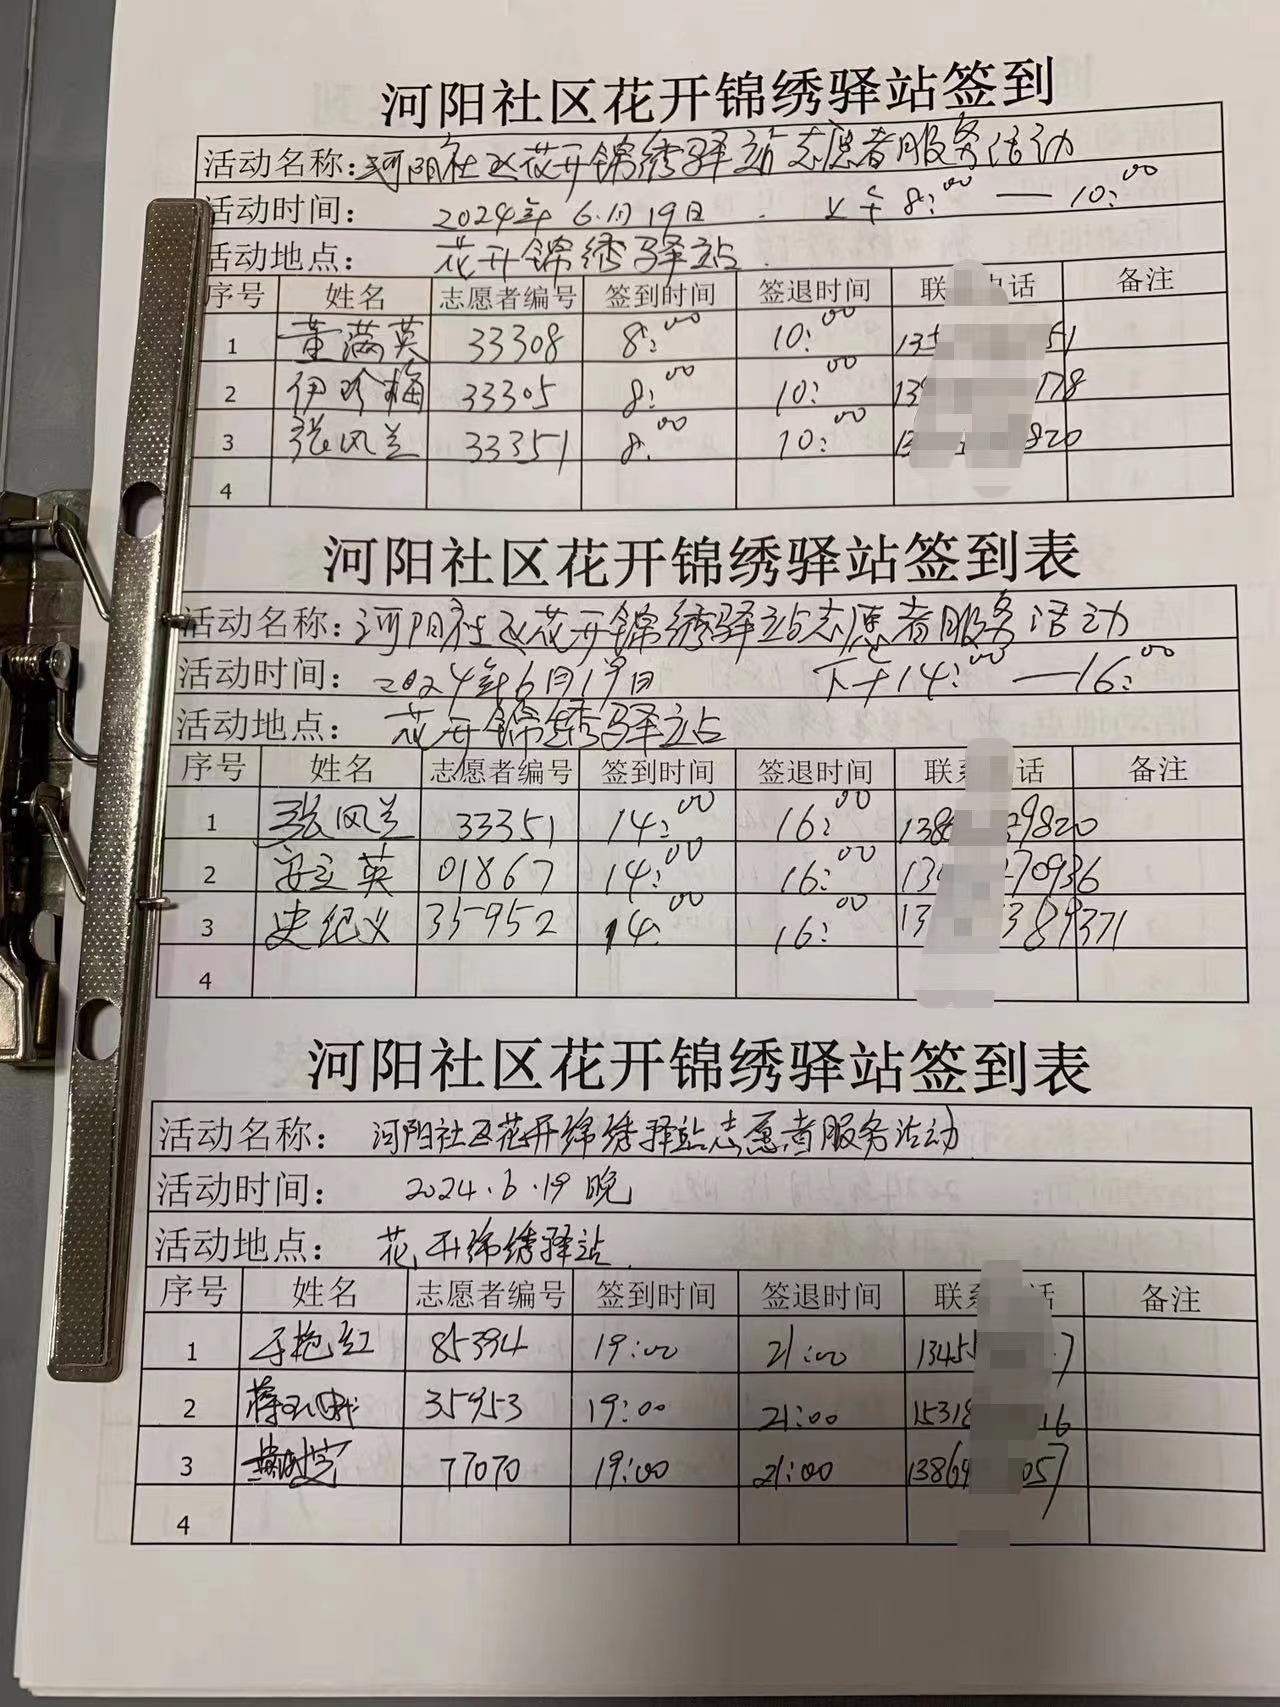 河阳社区花开锦绣驿站签到
活动名称:河阳社区花开锦绣驿站志愿者服务活动
活动时间: 2024年6月19日 上午8:00—10:00
活动地点: 花开锦绣驿站
序号 姓名 志愿者编号 签到时间 签退时间 联 话 备注
1 董满英 33308 8:00 10:00 13 51
2 伊珍梅 33305 8:00 10:00 13 178
3 张风兰 33351 8:00 10:00 13 820
4
河阳社区花开锦绣驿站签到表
活动名称:河阳社区花开锦绣驿站志愿者服务活动
活动时间: 2024年6月19日 下午14:00—16:00
活动地点: 花开锦绣驿站
序号 姓名 志愿者编号 签到时间 签退时间 联系 话 备注
1 张风兰 33351 14:00 16:00 138 29820
2 安立英 01867 14:00 16:00 13 270936
3 史纪义 35952 14: 00 16:00 13 389371
4
河阳社区花开锦绣驿站签到表
活动名称: 河阳社区花开锦绣驿站志愿者服务活动
活动时间: 2024.6.19晚
活动地点: 花开锦绣驿站
序号 姓名 志愿者编号 签到时间 签退时间 联系 话 备注
1 于艳红 85394 19:00 21:00 13455 7
2 35953 19:00 21:00 15318 16
3 77070 19:00 21:00 13864 057
4